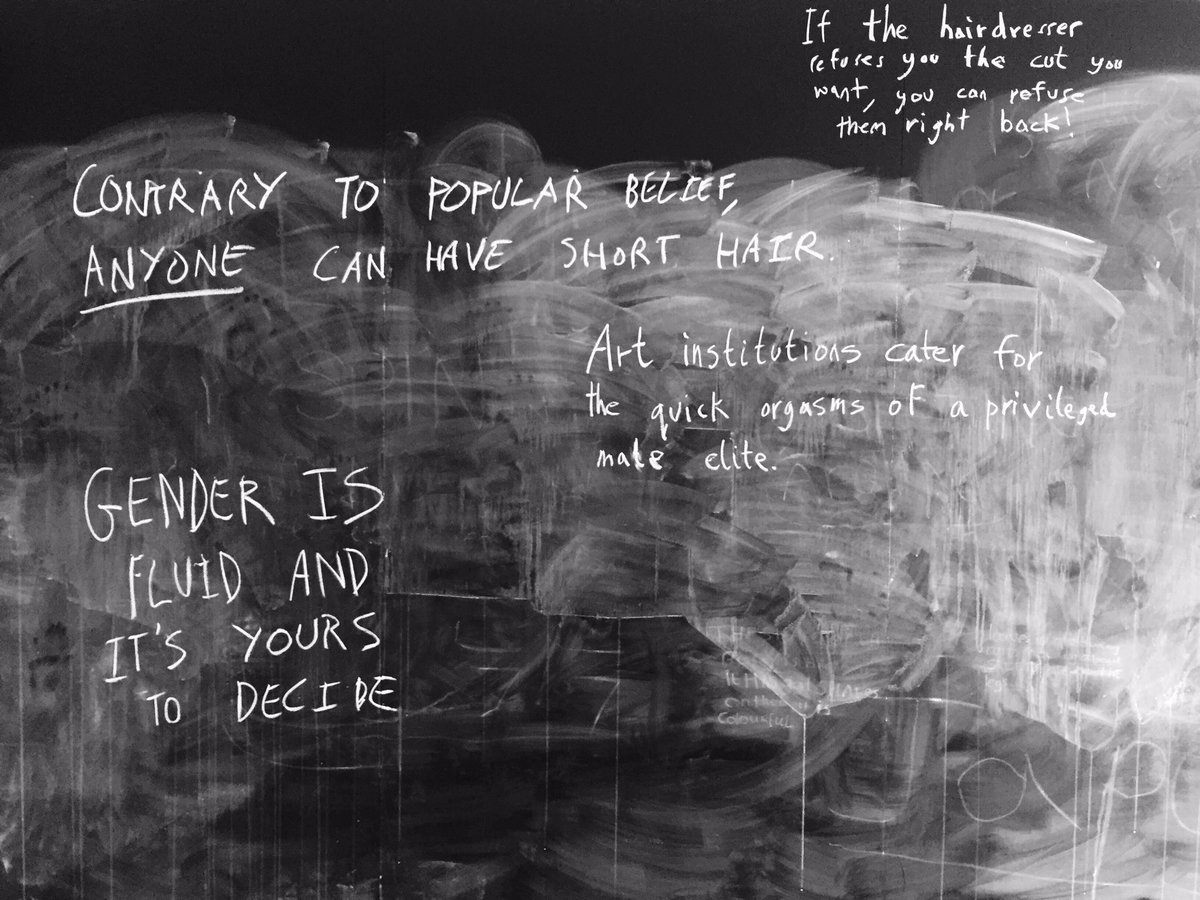 If the hairdresser
refuses you the cut you
want, you can refuse
them right back!
CONTRARY TO POPULAR BELIEF,
ANYONE CAN HAVE SHORT HAIR.
Art institutions cater for
the quick orgasms of a privileged
male elite.
GENDER IS
FLUID AND
IT'S YOURS
TO DECIDE
Colourful